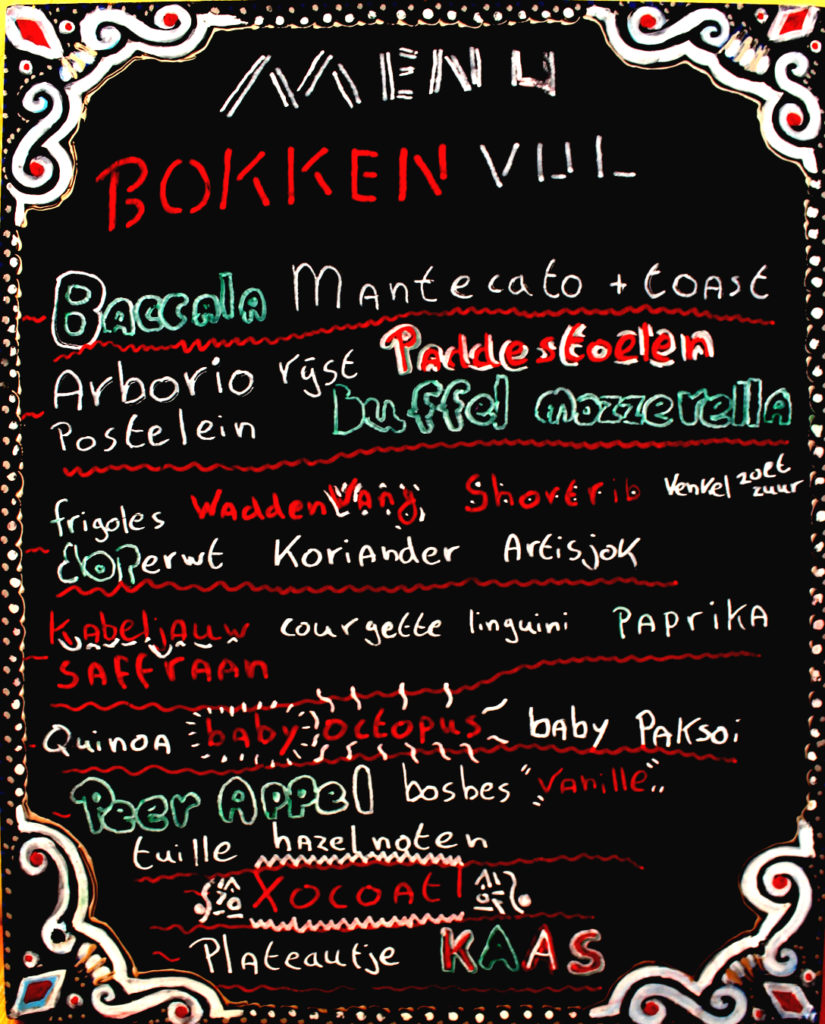 MENU
BOKKEN VIJL
~ Baccala Mantecato + toast
Arborio rijst Paddestoelen
~ Postelein buffel mozzerella
frigoles WaddenVang Shortrib Venkel zoet zuur
~ DOPerwt Koriander Artisjok
Kabeljauw courgette linguini PAPrikA
~ SAFFRAAN
- Quinoa baby octopus baby PAKsoi
~ Peer APPel bosbes "Vanille"
tuille hazelnoten
Xocoatl
~ Plateautje KAAS